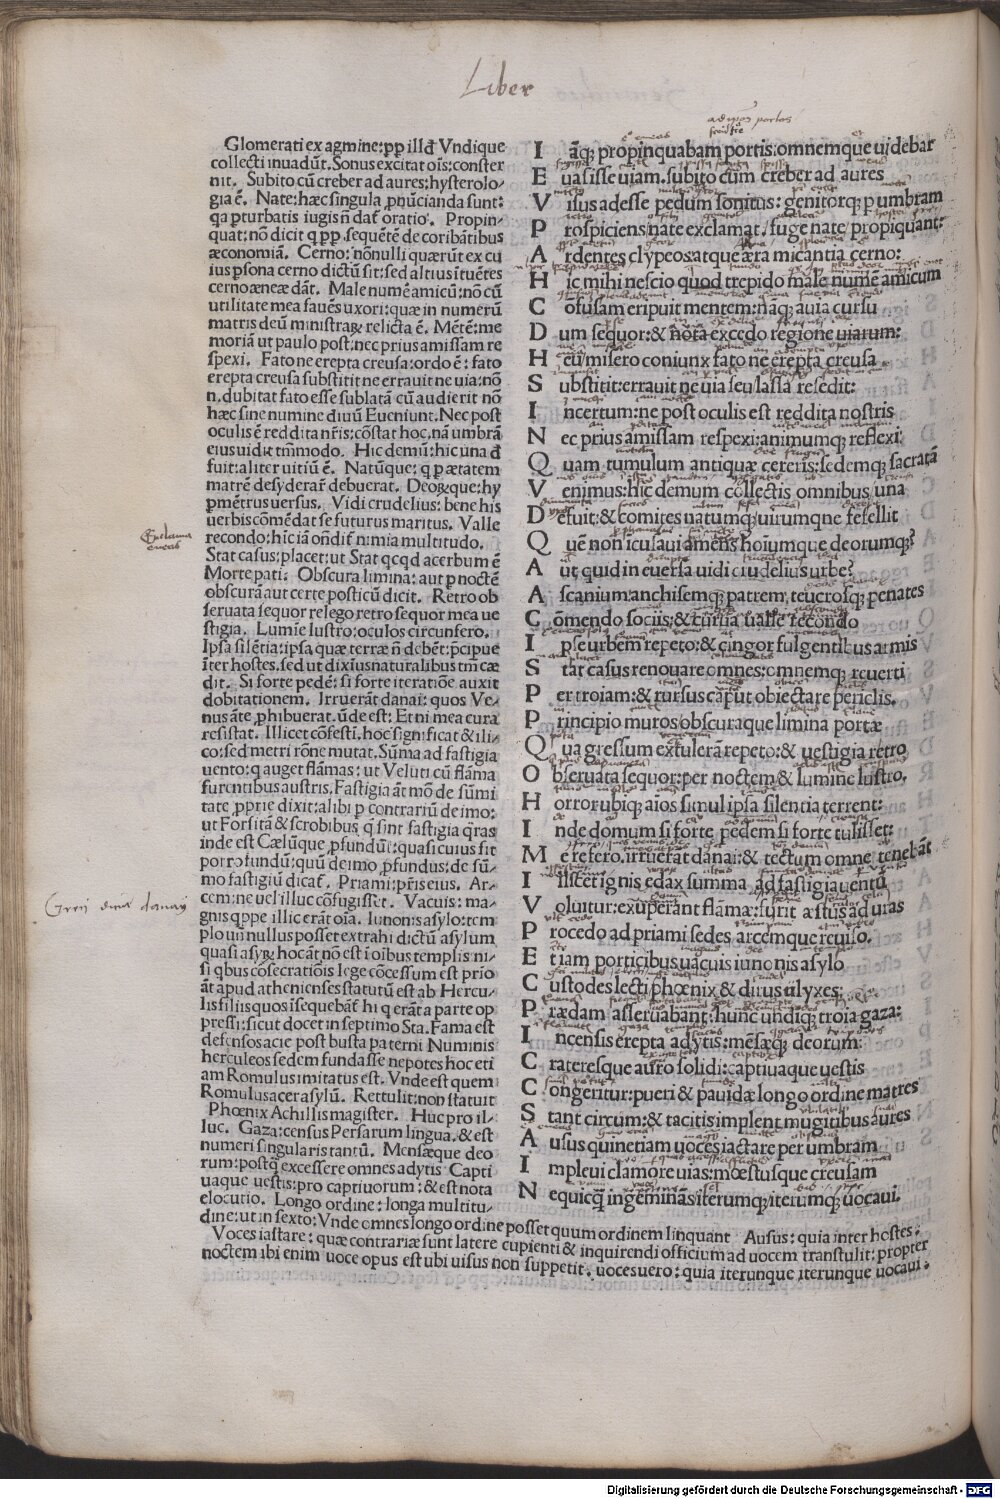 Liber
Glomerati ex agmine: ꝓp illd̄ Vndique
collecti inuadūt. Sonus excitat oīs: conster
nit. Subito cū creber ad aures: hysterolo-
gia ē. Nate: hæc singula ꝓnūcianda sunt:
qa ꝑturbatis iugis n̄ dat̄ oratio. Propin-
quat: nō dicit q ꝓp. sequētē de coribātibus
æconomiā. Cerno: nōnulli quærūt ex cu
ius ꝑsona cerno dictū sit: sed altius ītuētes
cerno æneæ dāt. Male numē amicū: nō cū
utilitate mea fauēs uxori: quæ in numerū
matris deū ministraꝝ relicta ē. Mētē: me
moriā ut paulo post: nec prius amissam re
spexi. Fato ne erepta creusa: ordo ē: fato
erepta creusa substitit ne errauit ne uia: nō
n. dubitat fato esse sublatā cū audierit nō
hæc sine numine diuū Eueniunt. Nec post
oculis ē reddita nr̄is: cōstat hoc. nā umbrā
eius uidit tm̄modo. Hic demū: hic una d̄
fuit: aliter uitiū ē. Natūque: q ꝑ ætatem
matrē desyderan̄ debuerat. Deoꝝque: hy
ꝑmētrus uersus. Vidi crudelius: bene his
uerbis cōmēdat se futurus maritus. Valle
recondo: hic iā ondit̄ nimia multitudo.
Stat casus: placet: ut Stat qcqd acerbum ē
Morte pati. Obscura limina: aut ꝑ noctē
obscurā aut certe posticū dicit. Retro ob
seruata sequor relego retro sequor mea ue
stigia. Lumīe lustro: oculos circunfero.
Ipsa silētia: ipsa quæ terræ n̄ debēt: p̄cipue
īter hostes. sed ut dixīus naturalibus tm̄ cæ
dit. Si forte pedē: si forte iteratiōe auxit
dobitationem. Irruerāt danai: quos Ve-
nus āte ꝓhibuerat. ūde est: Et ni mea cura
resistat. Illicet cōfestī. hoc significat & ili-
co: sed metri rōne mutat. Sūma ad fastigia
uento: q auget flāmas: ut Veluti cū flāma
furentibus austris. Fastigia āt mō de sūmi
tate ꝓprie dixit: alibi ꝑ contrariū de imo:
ut Forsitā & scrobibus q̄ sint fastigia q̄ras
inde est Cælūque ꝓfundū: quasi cuius sit
porro fundū: quū de imo ꝓfundus: de sū-
mo fastigiū dicat̄. Priami: pr̄is eius. Ar-
cem: ne uel illuc cōfugisset. Vacuis: ma-
gnis qppe illic erāt oīa. Iunonis asylo: tem
plo uñ nullus posset extrahi dictū asylum
quasi asyꝝ hoc āt nō est ī oībus templis ni-
si qbus cōsecratiōis lege cōcessum est prio
āt apud athenienses statutū est ab Hercu-
lis filiis quos īsequebāt̄ hi q erāt a parte op
pressi: sicut docet in septimo Sta. Fama est
defensos acie post busta paterni Numinis
herculeos sedem fundasse nepotes hoc eti
am Romulus imitatus est. Vnde est quem
Romulus acer asylū. Rettulit: non statuit
Phœnix Achillis magister. Huc pro il-
luc. Gaza: census Persarum lingua. & est
numeri singularis tantū. Mensæque deo
rum: postq̄ excessere omnes adytis Capti
uaque uestis: pro captiuorum: & est nota
elocutio. Longo ordine: longa multitu-
dine: ut in sexto: Vnde omnes longo ordine posset quum ordinem linquant Ausus: quia inter hostes:
Voces iastare: quæ contrariæ sunt latere cupienti & inquirendi officium ad uocem transtulit: propter
noctem ibi enim uoce opus est ubi uisus non suppetit. uoces uero: quia iterunque iterunque uocaui.
Iāq; propinquabam portis: omnemque uidebar
Euasisse uiam. subito cum creber ad aures
Visus adesse pedum sonitus: genitorq; ꝑ umbram
Prospiciens nate exclamat. fuge nate propiquant:
Ardentes clypeos atque æra micantia cerno:
Hic mihi nescio quod trepido male numē amicum
Cōfusam eripuit mentem: nāq; auia cursu
Dum sequor: & nota excedo regione uiarum:
Heu misero coniunx fato ne erepta creusa
Substitit: errauit ne uia seu lassa resedit:
Incertum: ne post oculis est reddita nostris
Nec prius amissam respexi: animumq; reflexi
Quam tumulum antiquæ cereris: sedemq; sacratā
Venimus: hic demum collectis omnibus una
Defuit: & comites natumq; uirumqne fefellit
Quē non iculaui amens hoīumque deorumq;?
Aut quid in euersa uidi ciudelius urbe?
Ascanium anchisemq; patrem, teucrosq; penates
Cōmendo sociis: & curua ualle recondo
Ipse urbem repeto: & cingor fulgentibus armis
Stat casus renouare omnes: omnemq; reuerti
Per troiam: & rursus caput obiectare periclis.
Principio muros obscuraque limina portæ
Qua gressum extulerā repeto: & uestigia retro
Obseruata sequor: per noctem & lumine lustro.
Horror ubiq; aios simul ipsa silentia terrent:
Inde domum si forte pedem si forte tulisset:
Me refero. irruerāt danai: & tectum omne tenebāt
Ilicet ignis edax summa ad fastigia uentū
Voluitur: exuperant flāmæ: furit æstus ad uras
Procedo ad priami sedes, arcemque reuiso.
Etiam porticibus uacuis iunonis asylo
Custodes lecti phœnix & dirus ulyxes:
Prædam asseruabant: hunc undiq; troia gaza:
Incensis erepta adytis: mēsæq; deorum:
Crateresque auro solidi: captiuaque uestis
Congeritur: pueri & pauidæ longo ordine matres
Stant circum: & tacitis implent mugitibus aures
Ausus quinetiam uoces iactare per umbram
Impleui clamore uias: mœstusque creusam
Nequicq̄ ingeminās iterumq; iterumq; uocaui.
Digitalisierung gefördert durch die Deutsche Forschungsgemeinschaft - DFG